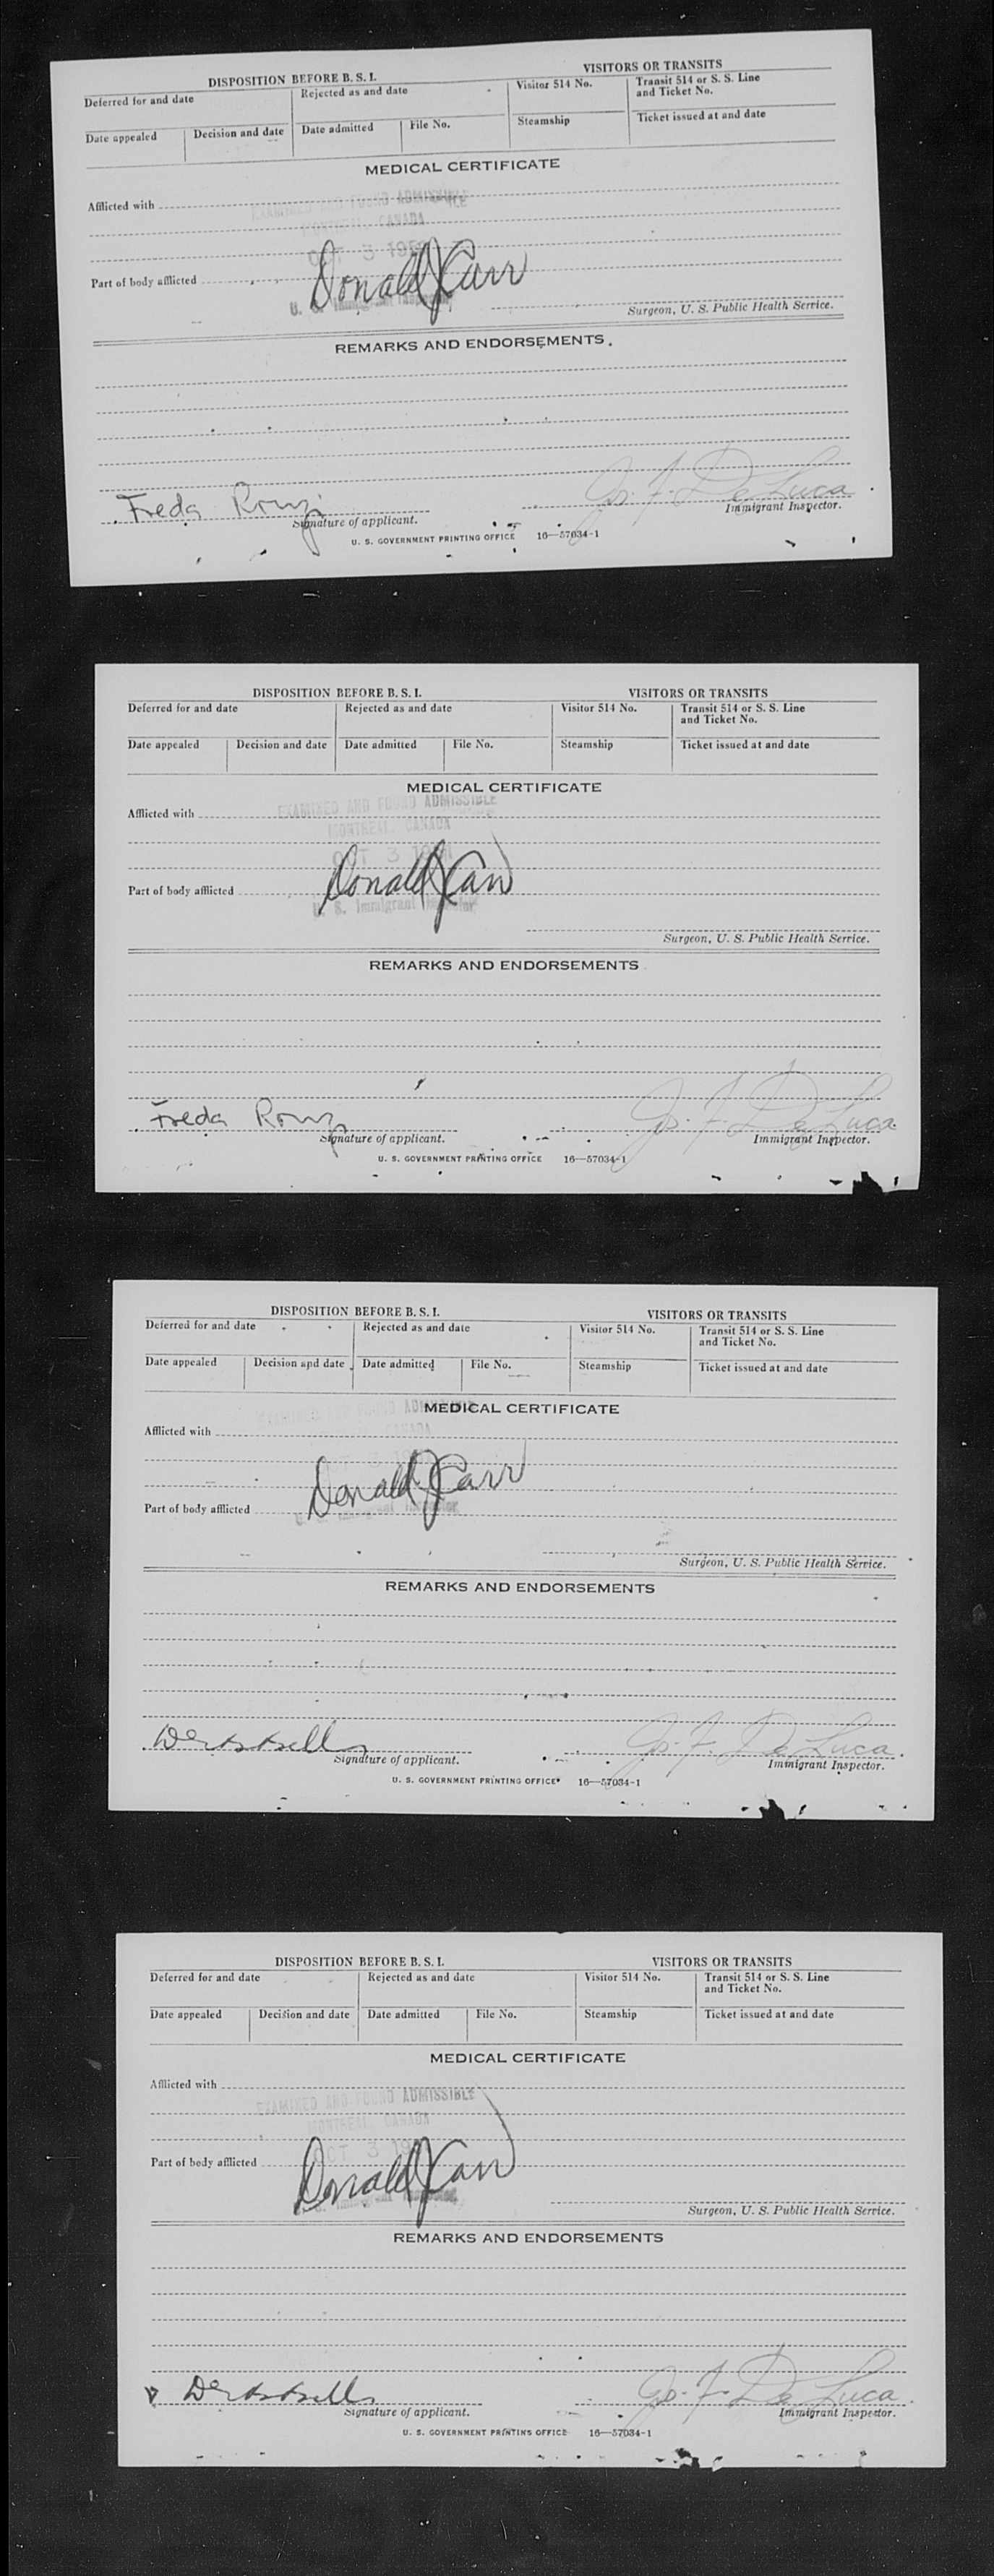 DISPOSITION BEFORE B. S. I. VISITORS OR TRANSITS
Deferred for and date Rejected as and date Visitor 514 No. Transit 514 or S. S. Line
and Ticket No.
Date appealed Decision and date Date admitted File No. Steamship Ticket issued at and date
MEDICAL CERTIFICATE
Afflicted with
EXAMINED AND FOUND ADMISSIBLE
MONTREAL, CANADA
OCT 3
Donald J Carr
Part of body afflicted
U. S. Immigrant Inspector
Surgeon, U. S. Public Health Service.
REMARKS AND ENDORSEMENTS
Freda
Jos. F. De Luca
Signature of applicant. Immigrant Inspector.
U. S. GOVERNMENT PRINTING OFFICE 16—57034-1
DISPOSITION BEFORE B. S. I. VISITORS OR TRANSITS
Deferred for and date Rejected as and date Visitor 514 No. Transit 514 or S. S. Line
and Ticket No.
Date appealed Decision and date Date admitted File No. Steamship Ticket issued at and date
MEDICAL CERTIFICATE
EXAMINED AND FOUND ADMISSIBLE
Afflicted with
MONTREAL, CANADA
OCT 3
Donald J Carr
Part of body afflicted
U. S. Immigrant Inspector
Surgeon, U. S. Public Health Service.
REMARKS AND ENDORSEMENTS
Freda
Jos. F. De Luca
Signature of applicant. Immigrant Inspector.
U. S. GOVERNMENT PRINTING OFFICE 16—57034-1
DISPOSITION BEFORE B. S. I. VISITORS OR TRANSITS
Deferred for and date Rejected as and date Visitor 514 No. Transit 514 or S. S. Line
and Ticket No.
Date appealed Decision and date Date admitted File No. Steamship Ticket issued at and date
EXAMINED AND FOUND ADMISSIBLE
MEDICAL CERTIFICATE
Afflicted with
CANADA
Donald J Carr
Part of body afflicted
U. S. Immigrant Inspector
Surgeon, U. S. Public Health Service.
REMARKS AND ENDORSEMENTS
Jos. F. De Luca
Signature of applicant. Immigrant Inspector.
U. S. GOVERNMENT PRINTING OFFICE 16—57034-1
DISPOSITION BEFORE B. S. I. VISITORS OR TRANSITS
Deferred for and date Rejected as and date Visitor 514 No. Transit 514 or S. S. Line
and Ticket No.
Date appealed Decision and date Date admitted File No. Steamship Ticket issued at and date
MEDICAL CERTIFICATE
Afflicted with
EXAMINED AND FOUND ADMISSIBLE
MONTREAL, CANADA
OCT 3
Donald J Carr
Part of body afflicted
Immigrant Inspector
Surgeon, U. S. Public Health Service.
REMARKS AND ENDORSEMENTS
Jos. F. De Luca
Signature of applicant. Immigrant Inspector.
U. S. GOVERNMENT PRINTING OFFICE 16—57034-1